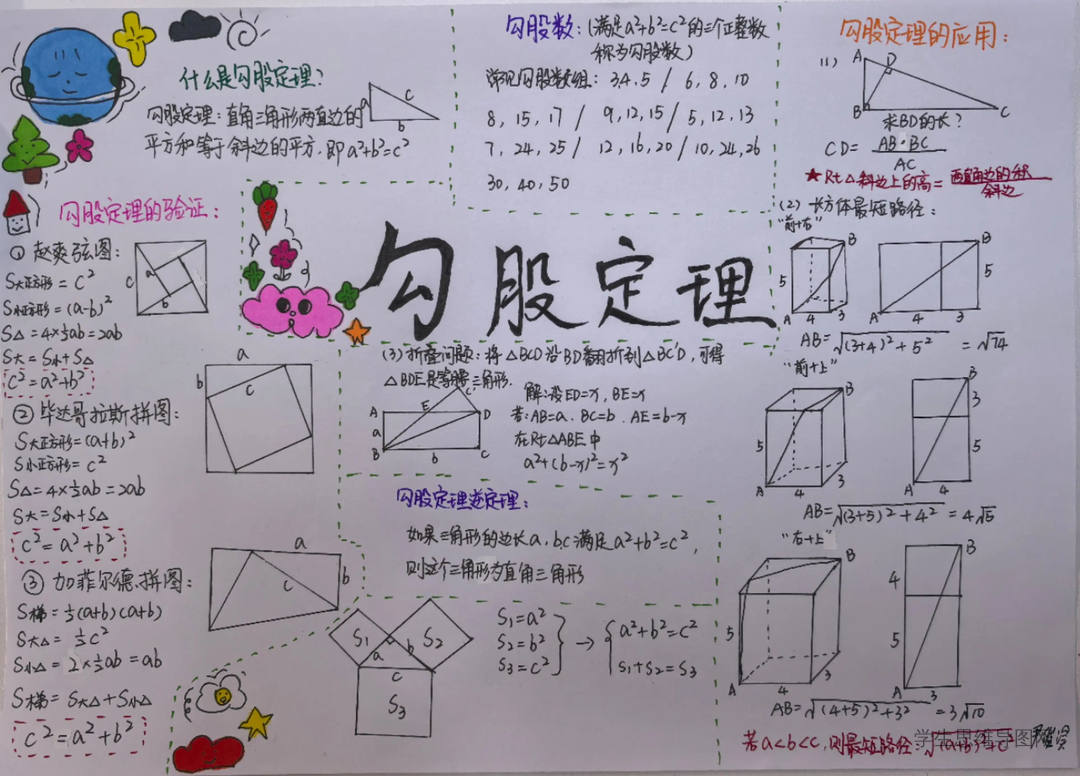 什么是勾股定理?
勾股定理:直角三角形两直角边的
平方和等于斜边的平方.即a²+b²=c²
a c
b
勾股定理的验证:
① 赵爽弦图:
S大正方形=c²
S小正方形=(a-b)²
S△=4×½ab=2ab
S大=S小+S△
c²=a²+b²
c a b
② 毕达哥拉斯拼图:
S大正方形=(a+b)²
S小正方形=c²
S△=4×½ab=2ab
S大=S小+S△
c²=a²+b²
a
b c
③ 加菲尔德拼图:
S梯=½(a+b)(a+b)
S大△=½c²
S小△=2×½ab=ab
S梯=S大△+S小△
c²=a²+b²
a
c b
勾股数:(满足a²+b²=c²的三个正整数
称为勾股数)
常见勾股数组: 3,4,5 / 6,8,10
8,15,17 / 9,12,15 / 5,12,13
7,24,25 / 12,16,20 / 10,24,26
30,40,50
勾股定理
(3)折叠问题:将△BCD沿BD翻折到△BC'D,可得
△BDE是等腰三角形.
A E C' D
a
B b C
解:设ED=x,BE=x
若:AB=a.BC=b.AE=b-x
在Rt△ABE中
a²+(b-x)²=x²
勾股定理逆定理:
如果三角形的边长a,b,c满足a²+b²=c²,
则这个三角形为直角三角形
S1 S2
a b
c
S3
S1=a²
S2=b²
S3=c²
→
a²+b²=c²
S1+S2=S3
勾股定理的应用:
(1)
A D
B C
求BD的长?
CD= AB·BC
AC
★Rt△斜边上的高= 两直角边的积
斜边
(2)长方体最短路径:
"前+右"
B B
5 5
A 4 3 A 4 3
AB=√(3+4)²+5² =√74
"前+上"
B B
3
5 5
A 4 3 A 4
AB=√(3+5)²+4² =4√5
"右+上"
B B
4
5 5
A 4 3 A 3
AB=√(4+5)²+3² =3√10
若a<b<c,则最短路径:√(a+b)²+c²
学生思维导图